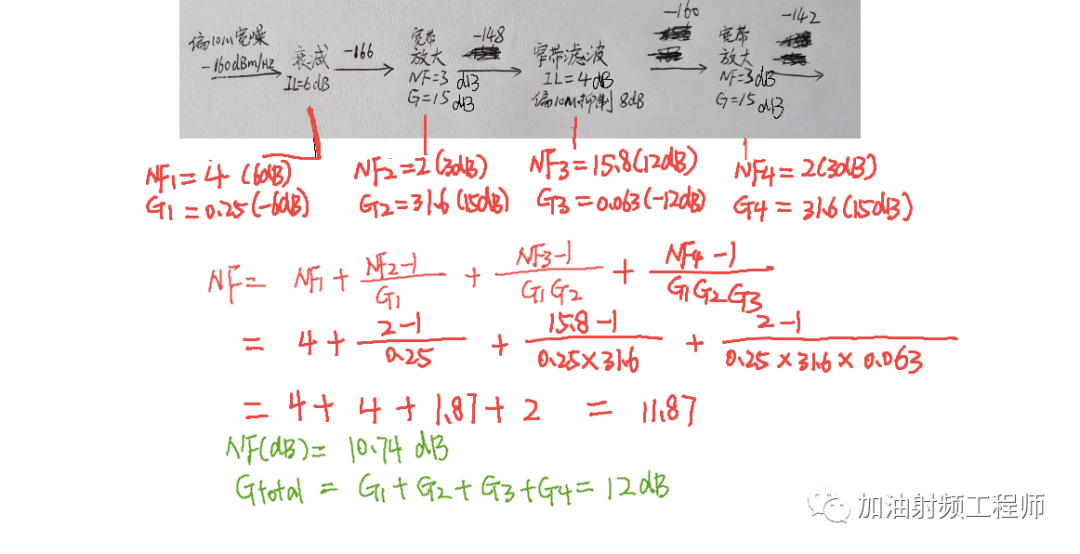 偏10M宽噪
-160dBm/HZ
衰减
IL=6dB
-166
宽带
放大
NF=3dB
G=15dB
-148
窄带滤波
IL=4dB
偏10M抑制8dB
-160
宽带
放大
NF=3dB
G=15dB
-142
NF1=4(6dB)
G1=0.25(-6dB)
NF2=2(3dB)
G2=31.6(15dB)
NF3=15.8(12dB)
G3=0.063(-12dB)
NF4=2(3dB)
G4=31.6(15dB)
NF= NF1+ NF2-1/G1 + NF3-1/G1G2 + NF4-1/G1G2G3
= 4+ 2-1/0.25 + 15.8-1/0.25×31.6 + 2-1/0.25×31.6×0.063
= 4+4+1.87+2 = 11.87
NF(dB)= 10.74 dB
Gtotal = G1+G2+G3+G4=12dB
加油射频工程师